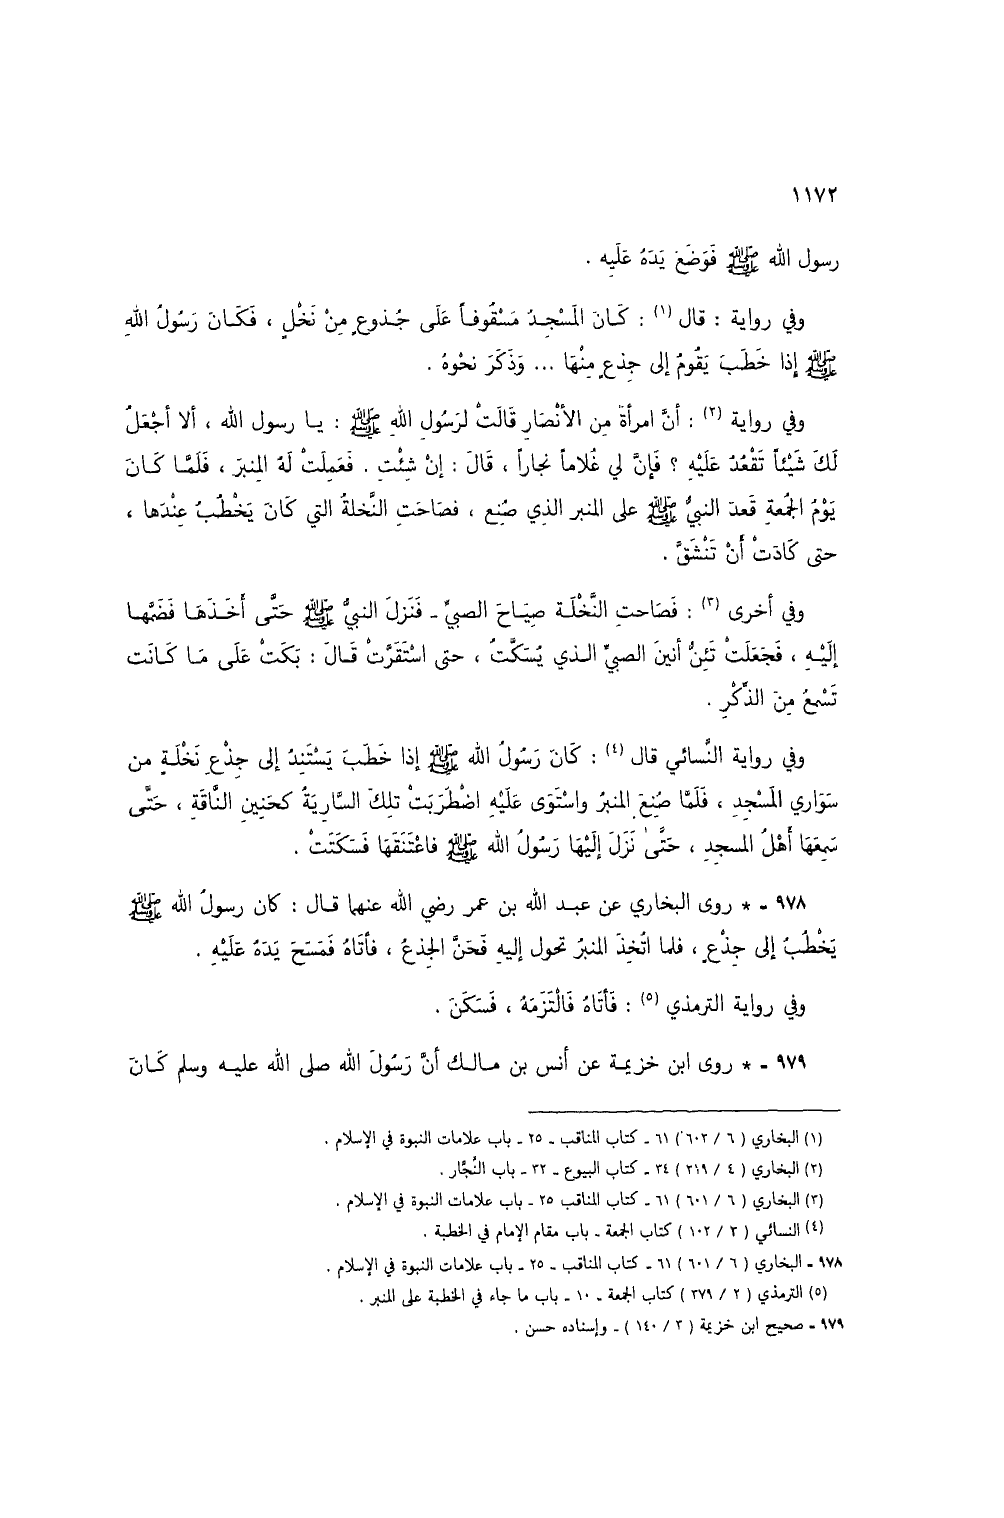 ١١٧٢
رسول الله ﷺ فَوَضَعَ يَدَهُ عَلَيه .
وفي رواية : قال (١) : كَـانَ المَسْجِـدُ مَسْقُوفـاً عَلَى جُـذوعٍ مِنْ نَخْلٍ ، فَكَـانَ رَسُولُ اللهِ
ﷺ إِذا خَطَبَ يَقُومُ إلى جِذعٍ مِنْهَا ... وَذَكَرَ نحْوهُ .
وفي رواية (٢) : أنَّ امرأةً مِن الأنْصَارِ قَالَتْ لرَسُولِ اللهِ ﷺ : يـا رسول الله ، ألا أجْعَلُ
لَكَ شَيْئاً تَقْعُدُ عَلَيْهِ ؟ فَإنَّ لي غُلاماً نجاراً ، قَالَ : إنْ شِئْتِ . فَعَمِلَتْ لَهُ المِنبرَ ، فَلَمَّـا كَـانَ
يَوْمُ الجُمعةِ قَعدَ النبيُّ ﷺ على المنبرِ الذي صُنِع ، فصَاحَتِ النَّخلةُ التي كَانَ يَخْطُبُ عِنْدَها ،
حتى كَادَتْ أَنْ تَنْشَقَّ .
وفي أخرى (٣) : فَصَاحتِ النَّخْلَـة صِيَـاحَ الصبيِّ ـ فَنَزلَ النبيُّ ﷺ حَتَّى أَخَـذَهَـا فَضَمَّهـا
إلَيْـهِ ، فَجَعَلَتْ تَئِنُّ أنينَ الصبيِّ الـذي يُسَكَّتُ ، حتى اسْتَقَرَّتْ قَـالَ : بَكَتْ عَلَى مَـا كَـانَت
تَسْمعُ مِنَ الذِّكْرِ .
وفي رواية النَّسائي قال (٤) : كَانَ رَسُولُ الله ﷺ إذا خَطَبَ يَسْتَنِدُ إلى جِذْعِ نَخْلَـةٍ من
سَوَاري المَسْجِدِ ، فَلَمَّا صُنِعَ المنبرُ واسْتَوَى عَلَيْهِ اضْطَرَبَتْ تلكَ السَّاريَةُ كحَنِينِ النَّاقَةِ ، حَتَّى
سَمِعَهَا أَهْلُ المسجدِ ، حَتَّى نَزَلَ إلَيْهَا رَسُولُ الله ﷺ فاعْتَنَقَهَا فَسَكَتَتْ .
٩٧٨ ـ * روى البخاري عن عبـد الله بن عمر رضي الله عنهما قـال : كان رسولُ الله ﷺ
يَخْطُبُ إلى جِذْعٍ ، فلما اتُخِذَ المنبرُ تحول إليهِ فَحَنَّ الجِذعُ ، فأتَاهُ فَمَسَحَ يَدَهُ عَلَيْهِ .
وفي رواية الترمذي (٥) : فَأتَاهُ فَالْتَزَمَهُ ، فَسَكَنَ .
٩٧٩ ـ * روى ابن خزيمـة عن أنس بن مـالـك أنَّ رَسُولَ الله صلى الله عليـه وسلم كَـانَ
(١) البخاري ( ٦ / ٦٠٢ ) ٦١ ـ كتاب المناقب ـ ٢٥ ـ باب علامات النبوة في الإسلام .
(٢) البخاري ( ٤ / ٢١٩ ) ٣٤ ـ كتاب البيوع ـ ٣٢ ـ باب النُجَّار .
(٣) البخاري ( ٦ / ٦٠١ ) ٦١ ـ كتاب المناقب ٢٥ ـ باب علامات النبوة في الإسلام .
(٤) النسائي ( ٣ / ١٠٢ ) كتاب الجمعة ـ باب مقام الإمام في الخطبة .
٩٧٨ ـ البخاري ( ٦ / ٦٠١ ) ٦١ ـ كتاب المناقب ـ ٢٥ ـ باب علامات النبوة في الإسلام .
(٥) الترمذي ( ٢ / ٣٧٩ ) كتاب الجمعة ـ ١٠ ـ باب ما جاء في الخطبة على المنبر .
٩٧٩ ـ صحيح ابن خزيمة ( ٣ / ١٤٠ ) ـ وإسناده حسن .